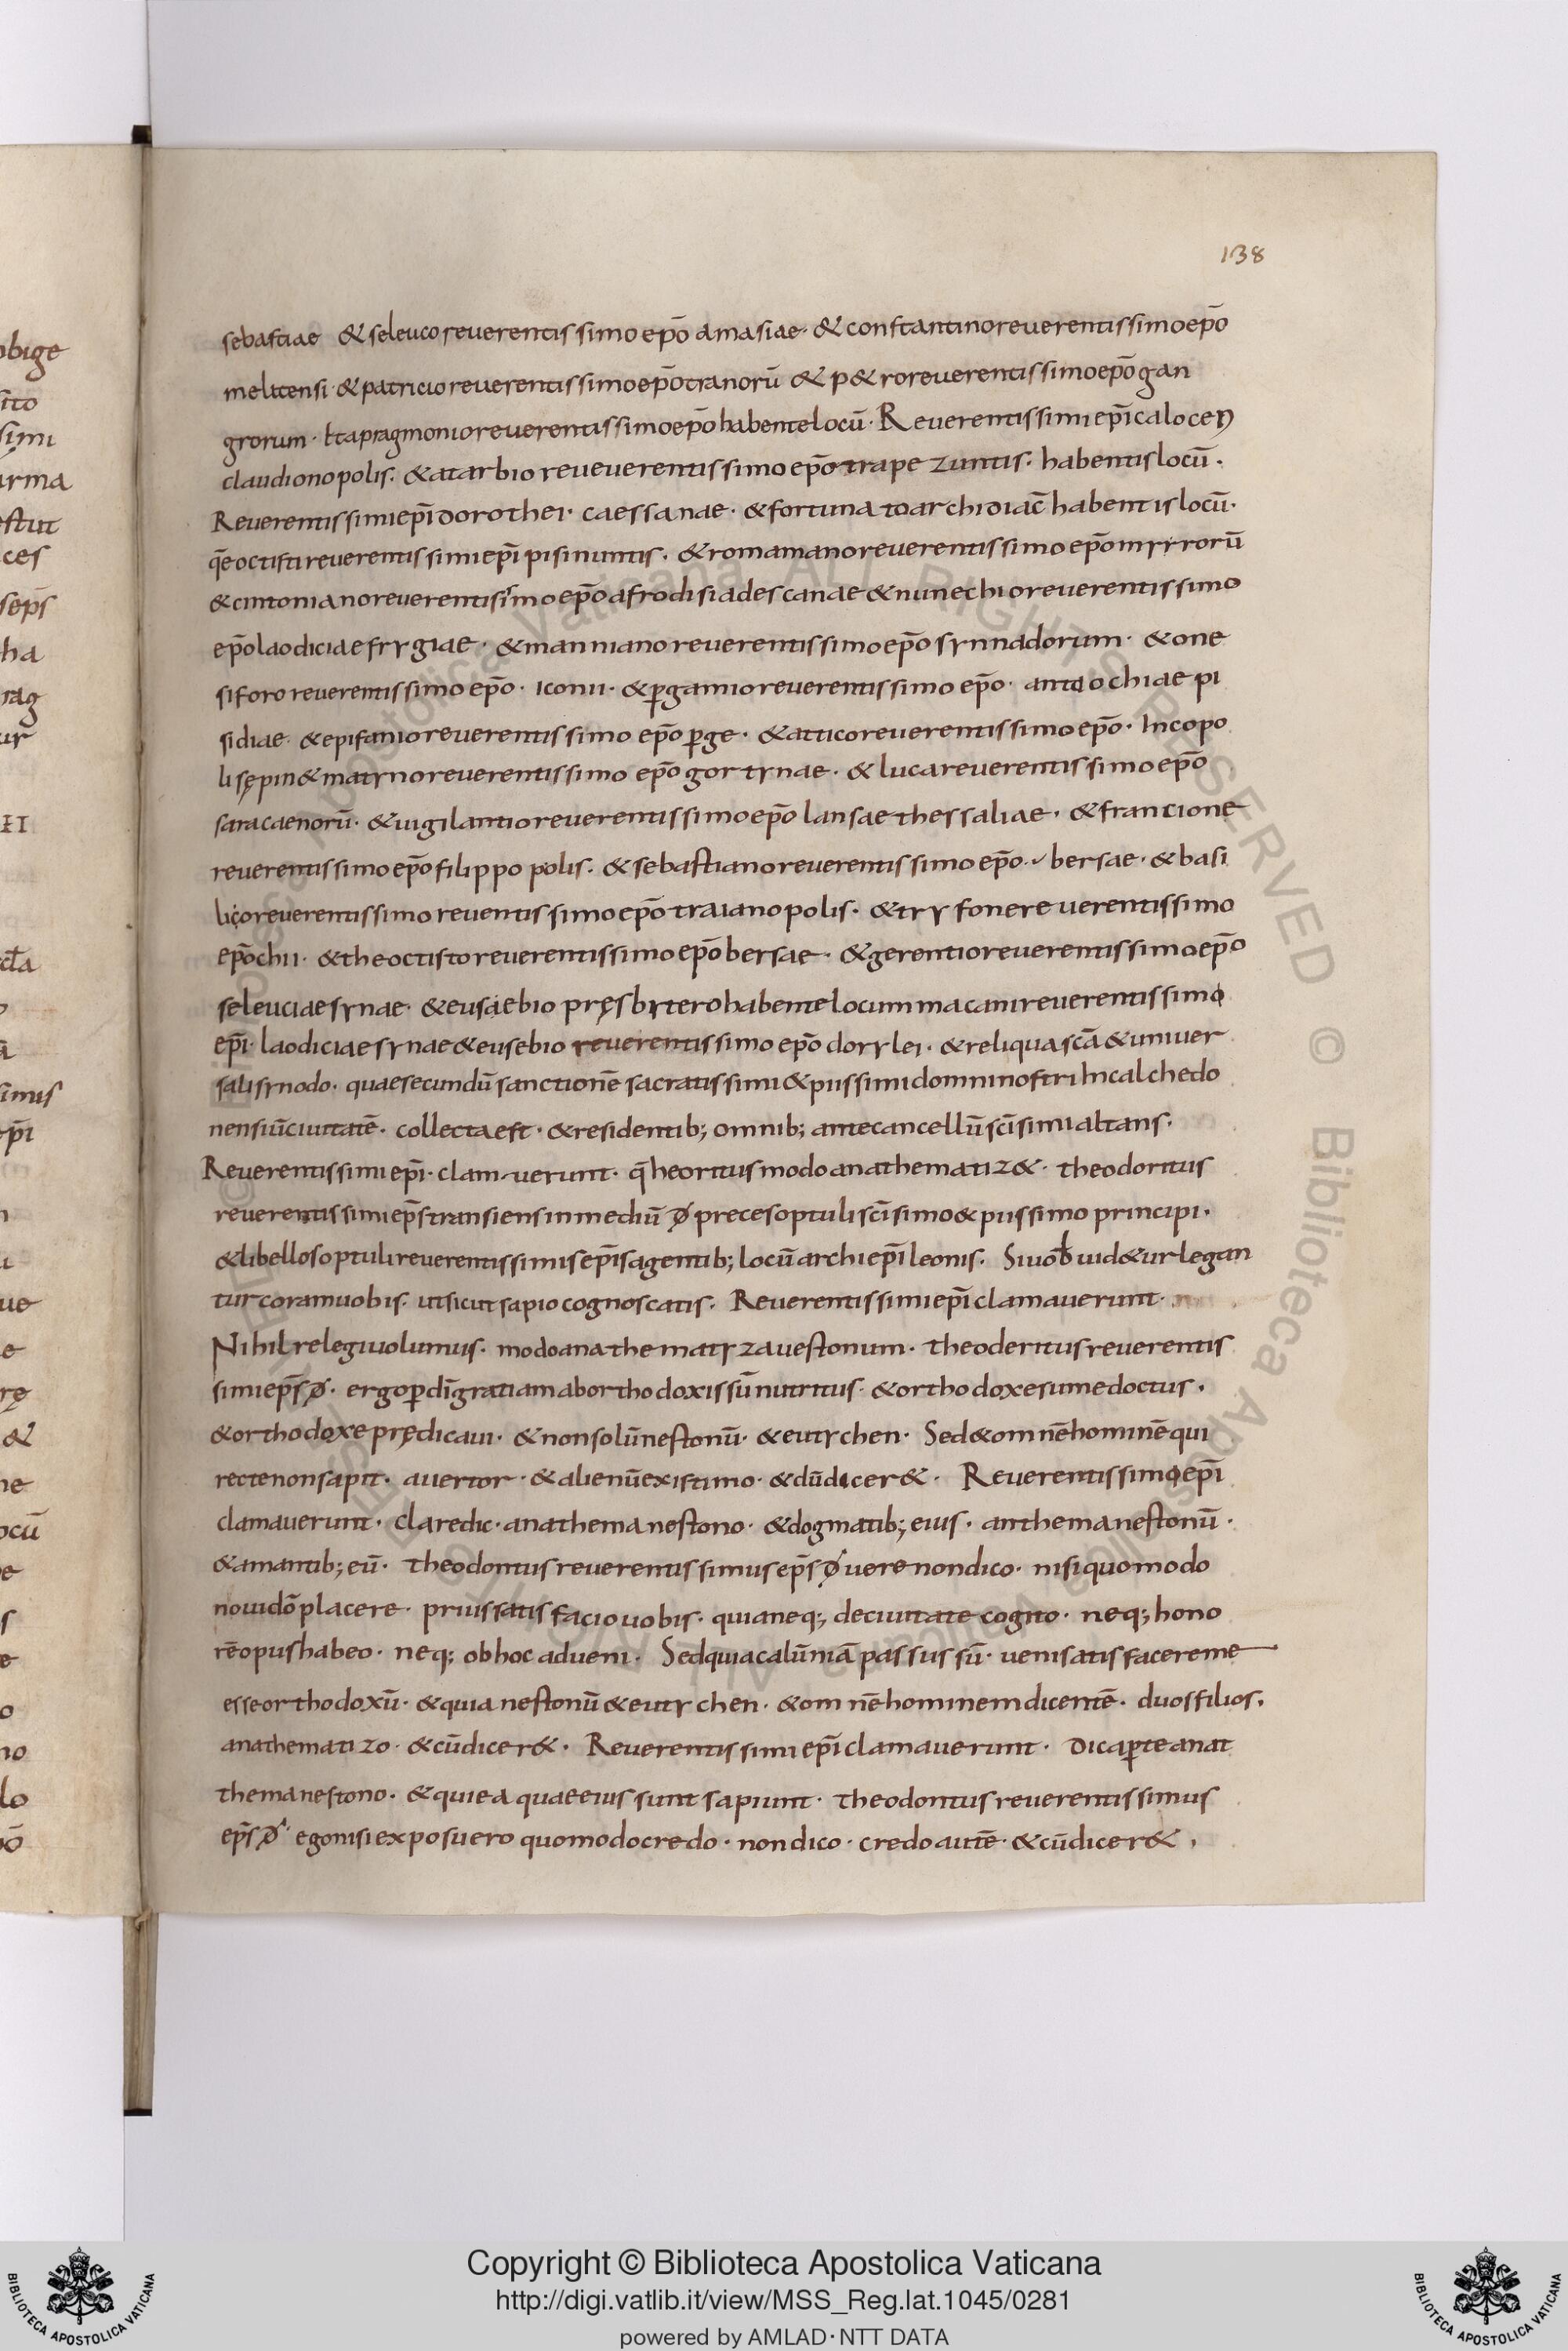 138
sebastiae & seleuco reuerentissimo ep̄o amasiae· & constantino reuerentissimo ep̄o
melitensi· & patricio reuerentissimo ep̄o tranorū & p&ro reuerentissimo ep̄o gan
grorum· &apragmonio reuerentissimo ep̄o habente locū· Reuerentissimi ep̄i
claudionopolis· & atarbio reueuerentissimo ep̄o trapezuntis· habentis locū·
Reuerentissimi ep̄i dorothei· caessanae· & fortunato archidiac̄ habentis locū·
q̄e octisti reuerentissimi ep̄i pisinuntis· & romamano reuerentissimo ep̄o myrrorū
& cintoniano reuerentissimo ep̄o afrodisiadescanae & nunechio reuerentissimo
ep̄o laodiciae frygiae· & manniano reuerentissimo ep̄o synnadorum· & one
siforo reuerentissimo ep̄o· iconii· & pgamio reuerentissimo ep̄o· antiochiae pi
sidiae· & epifanio reuerentissimo ep̄o pge· & attico reuerentissimo ep̄o· Incopo
lis ępin & matyrno reuerentissimo ep̄o gortynae· & luca reuerentissimo ep̄o
saracaenorū· & uigilantio reuerentissimo ep̄o lansae thessaliae· & francione
reuerentissimo ep̄o filippopolis· & sebastiano reuerentissimo ep̄o· bersae· & basi
lico reuerentissimo reuentissimo ep̄o traianopolis· & tryfone reuerentissimo
ep̄o chii· & theoctisto reuerentissimo ep̄o bersae· & gerentio reuerentissimo ep̄o
seleuciae syriae· & eusaebio pręsbytero habente locum macani reuerentissimo
ep̄i· laodiciae syriae & eusebio reuerentissimo ep̄o dorylei· & reliqua scā & uniuer
sali synodo· quae secundū sanctionē sacratissimi & piissimi domni nostri In calchedo
nensiū ciuitatē· collecta est· & residentib; omnib; ante cancellū sc̄isimi altaris·
Reuerentissimi ep̄i· clam-uerunt· q̄heoritus modo anathematiz&· theodoritus
reuerentissimi ep̄s transiens in mediū đ preces optuli sc̄isimo & piissimo principi·
& libellos optuli reuerentissimis ep̄is agentib; locū archiep̄i leonis· Si uob uid&ur legan
tur coram uobis· uti sicut sapio cognoscatis· Reuerentissimi ep̄i clamauerunt·
Nihil relegi uolumus· modo anathematyza nestorium· theoderitus reuerentis
simi ep̄s đ· ergo p di gratiam ab orthodoxis sū nutritus· & orthodoxe sum edoctus·
& orthodoxe prędicaui· & non solū nestoriū· & eutychen· Sed & omnē hominē qui
recte non sapit· auertor· & alienū existimo· & dū dicer&· Reuerentissimi ep̄i
clamauerunt· clare dic· anathema nestorio· & dogmatib; eius· anthema nestoriū·
& amantib; eū· theodoritus reuerentissimus ep̄s đ uere non dico· nisi quomodo
noui dō placere· prius satisfacio uobis· quia neq; de ciuitate cogno· neq; hono
rē opus habeo· neq; ob hoc adueni· Sed quia calūniā passus sū· ueni satisfacere me
esse orthodoxū· & quia nestoriū & eutychen· & omnē hominem dicentē· duos filios·
anathematizo· & cū dicer&· Reuerentissimi ep̄i clamauerunt· dic aperte anat
thema nestorio· & qui ea quae eius sunt sapiunt· theodoritus reuerentissimus
ep̄s đ· ego nisi exposuero quomodo credo· non dico· credo autē· & cū dicer&·
Copyright © Biblioteca Apostolica Vaticana
http://digi.vatlib.it/view/MSS_Reg.lat.1045/0281
powered by AMLAD·NTT DATA